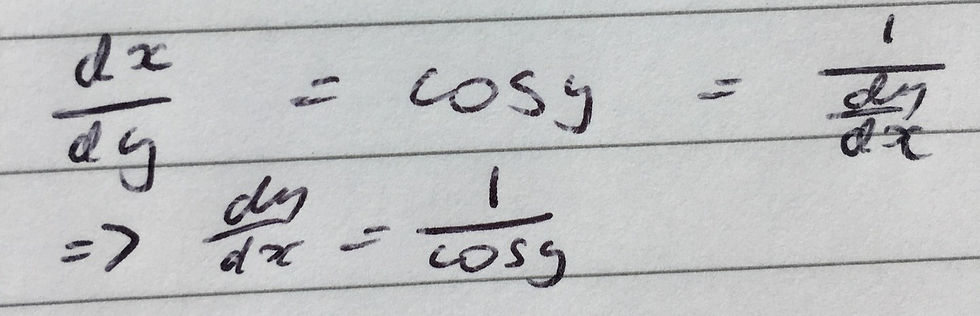 dx/dy = cosy = 1/(dy/dx)
=> dy/dx = 1/cosy